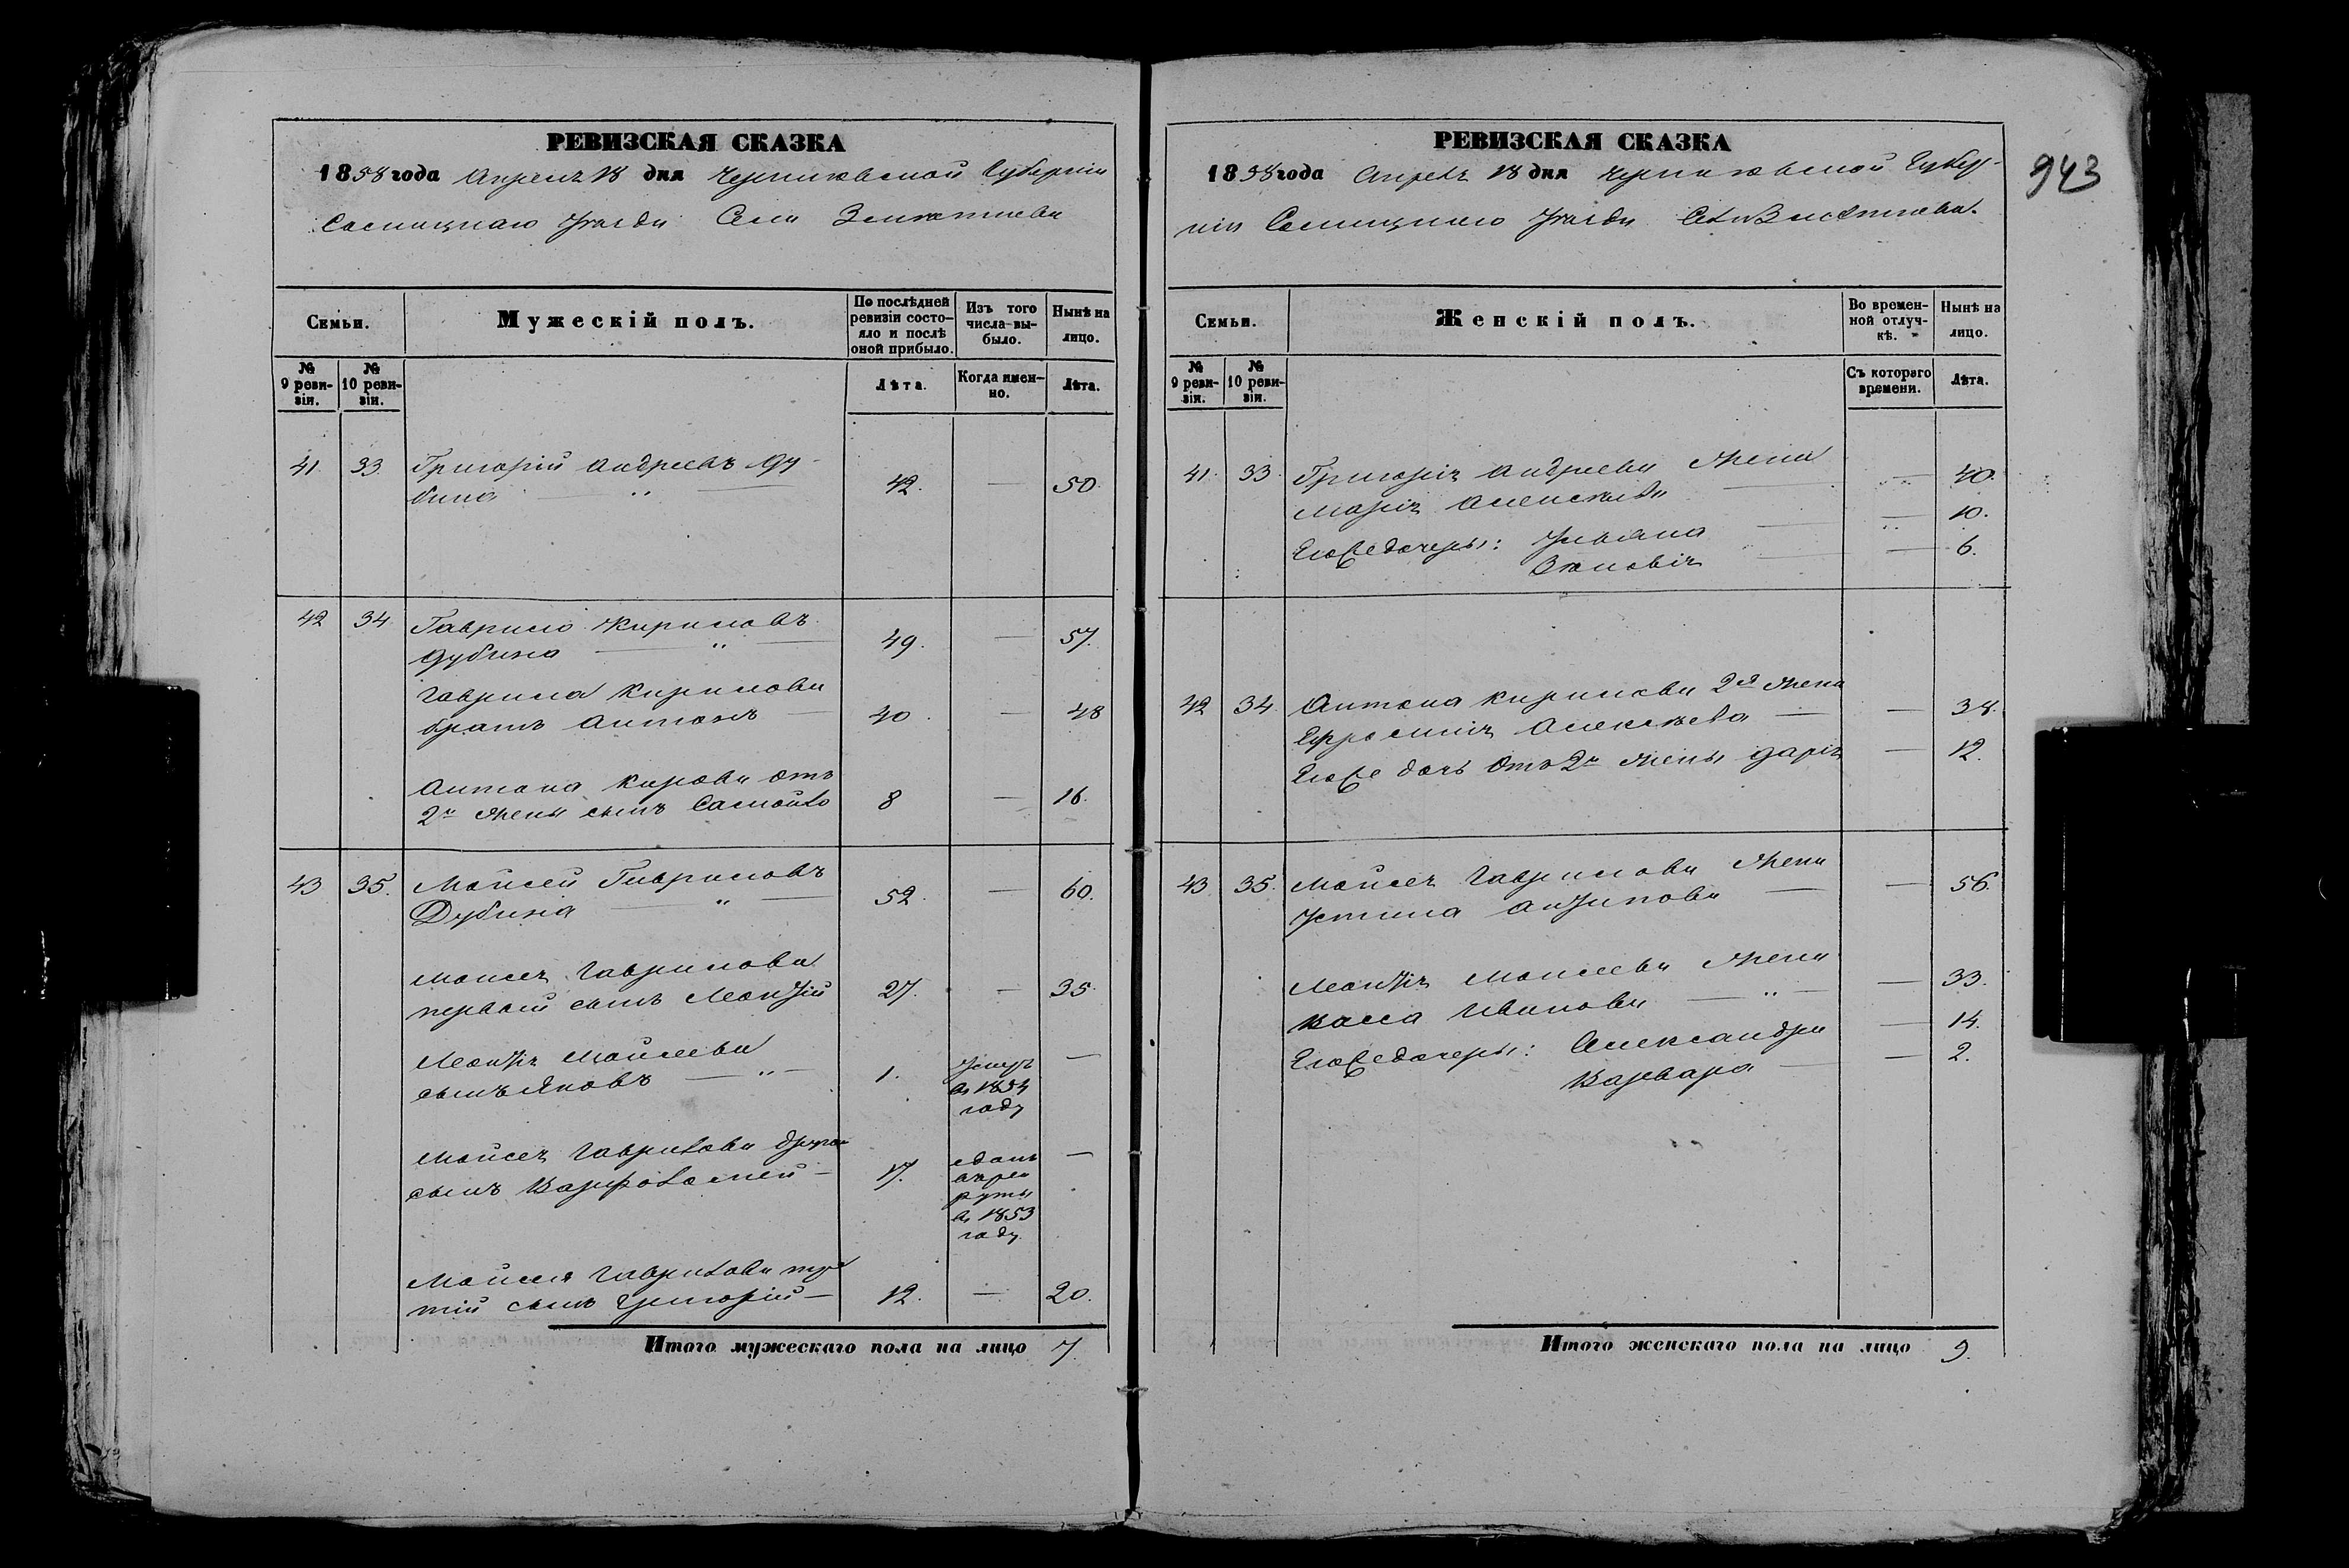 РЕВИЗСКАЯ СКАЗКА
1858 года Апреля 18 дня Черниговской Губернiи
Сосницкаго Уезда Села
Семьи.
Мужескiй полъ.
По послѣдней ревизiи состо-
яло и послѣ
оной прибыло.
Изъ того
числа вы-
было.
Нынѣ на
лицо.
№
9 реви-
зiи.
№
10 реви-
зiи.
Лѣта.
Когда имен-
но.
Лѣта.
41. 33 Григорiй Андреевъ Ду-
бина 42. — 50.
42 34 Гаврило Кириловъ
Дубина 49. — 57.
Гаврила Кирилова
братъ Антонъ — 40. — 48
Антона Кирова отъ
2й жены сынъ Самойло 8 — 16.
43 35. Мойсей Гавриловъ
Дубина 52. — 60.
Моисея Гаврилова
первый сынъ Леонтiй 27. — 35.
Леонтiя Мойсеева
сынъ Яковъ 1. умеръ —
в 1854
году
Мойсея Гаврилова другой
сынъ Варфоломей — 17. сданъ —
в рек
руты
в 1853
году
Мойсея Гаврилова тре
тiй сынъ Григорiй — 12. — 20.
Итого мужескаго пола на лицо 7.
943
РЕВИЗСКАЯ СКАЗКА
1858 года Апреля 18 дня Черниговской Губер-
нiи Сосницкаго Уезда Села
Семьи.
Женскiй полъ.
Во времен-
ной отлуч-
кѣ.
Нынѣ на
лицо.
№
9 реви-
зiи.
№
10 реви-
зiи.
Съ котораго
времени.
Лѣта.
41. 33. Григорiя Андреева жена
Марiя Алексеева — 40.
Его же дочери: Ульяна — 10.
Зиновiя — 6.
42 34. Антона Кирилова 2я жена
Ефросинiя Алексеева — 38.
Его же дочь отъ 2й жены Дарiя — 12.
43 35. Мойсея Гаврилова жена
Устина Антипова — 56.
Леонтiя Моисеева жена
Васса Иванова — 33.
Его же дочери: Александра — 14.
Варвара — 2.
Итого женскаго пола на лицо 9.